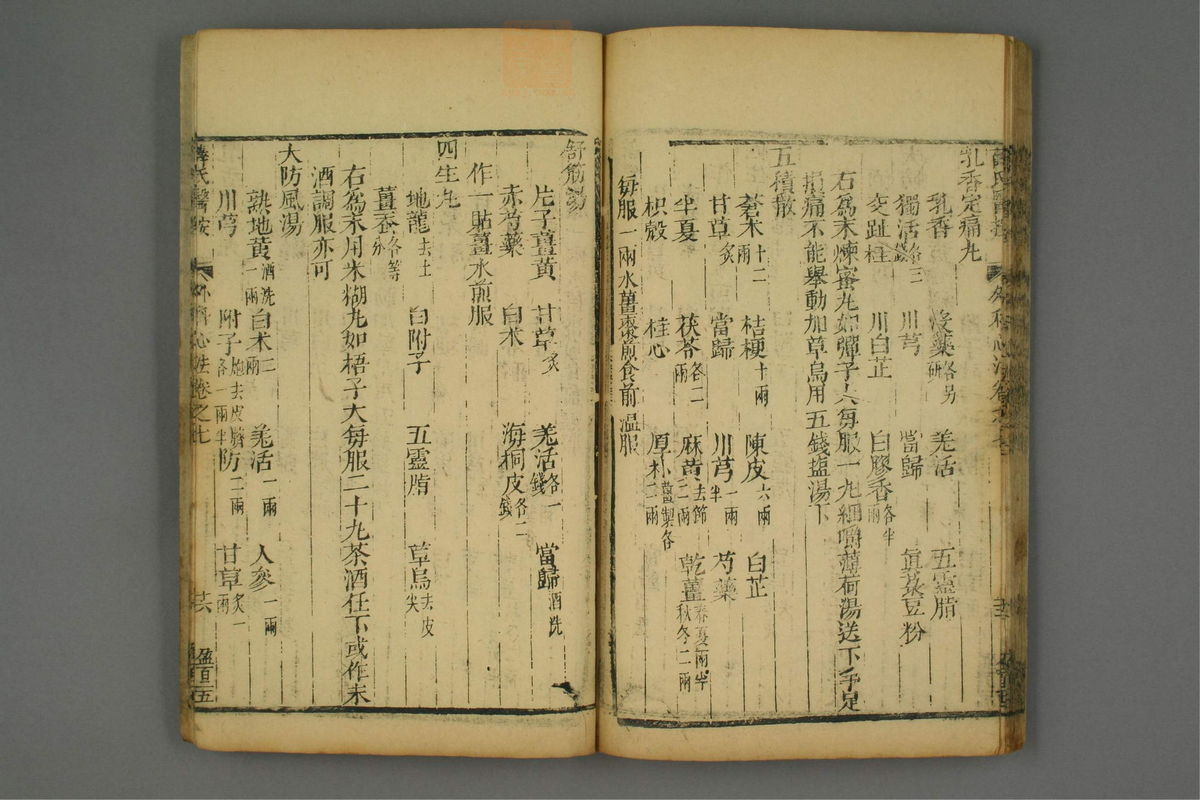 乳香定痛丸
乳香 沒藥各另研 羌活 五靈脂
獨活各三錢 川芎 當歸 真菉豆粉
交趾桂 川白芷 白膠香各半兩
右爲末煉蜜丸如彈子大每服一丸細嚼薄荷湯送下手足
損痛不能舉動加草烏用五錢塩湯下
五積散
蒼朮十二兩 桔梗十兩 陳皮六兩 白芷
甘草炙 當歸 川芎一兩半 芍藥
半夏 茯苓各二兩 麻黃去節二兩 乾薑春夏兩半秋冬二兩
枳殼 桂心 厚朴薑製各二兩
每服一兩水薑棗煎食前溫服
舒筋湯
片子薑黃 甘草炙 羌活各一錢 當歸酒洗
赤芍藥 白朮 海桐皮各二錢
作一貼薑水煎服
四生丸
地龍去土 白附子 五靈脂 草烏去皮尖
薑蚕各等分
右爲末用米糊丸如梧子大每服二十丸茶酒任下或作末
酒調服亦可
大防風湯
熟地黃酒洗一兩 白朮二兩 羌活一兩 人參一兩
川芎 附子炮去皮臍各一兩半 防二兩 甘草炙一兩
薛氏醫按 外科心法卷之七 十六 盈百五